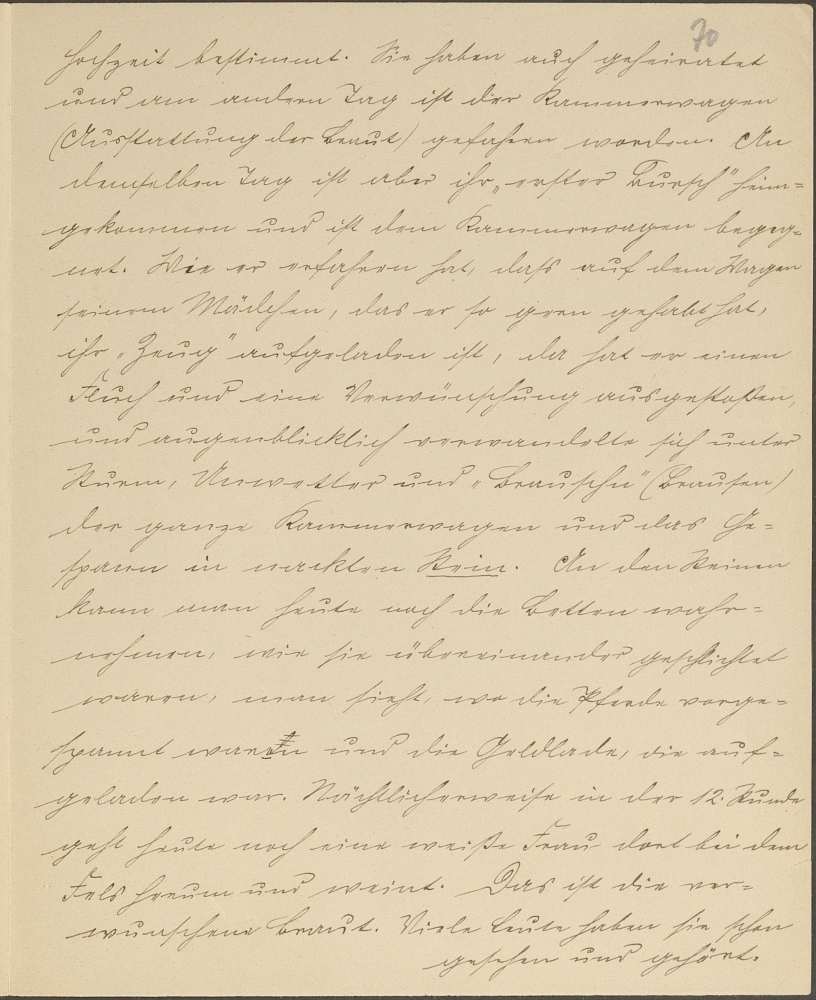 70
Hochzeit bestimmt. Sie haben auch geheiratet
und am andern Tag ist der Kammerwagen
(Ausstattung der Braut) gefahren worden. An
demselben Tag ist aber ihr „erster Bursch" heim=
gekommen und ist dem Kammerwagen begeg=
net. Wie er erfahren hat, daß auf dem Wagen
seinem Mädchen, das er so gern gehabt hat,
ihr „Zeug" aufgeladen ist, da hat er einen
Fluch und eine Verwünschung ausgestoßen,
und augenblicklich verwandelte sich unter
Sturm, Unwetter und „Brauschn" (Brausen)
der ganze Kammerwagen und das Ge=
spann in nackten Stein. An den Steinen
kann man heute noch die Betten wahr=
nehmen, wie sie übereinander geschlichtet
waren, man sieht, wo die Pferde vorge=
spannt waren und die Geldlade, die auf=
geladen war. Nächtlicherweise in der 12. Stunde
geht heute noch eine weiße Frau dort bei dem
Fels herum und weint. Das ist die ver=
wunschene Braut. Viele Leute haben sie schon
gesehen und gehört.